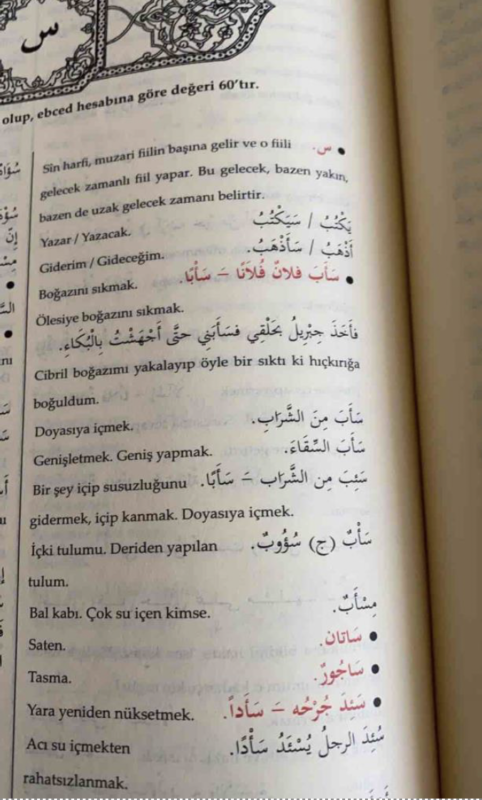 س
olup, ebced hesabına göre değeri 60'tır.
• س.
Sîn harfi, muzari fiilin başına gelir ve o fiili
gelecek zamanlı fiil yapar. Bu gelecek, bazen yakın,
bazen de uzak gelecek zamanı belirtir.
يَكْتُبُ / سَيَكْتُبُ
Yazar / Yazacak.
أَذْهَبُ / سَأَذْهَبُ.
Giderim / Gideceğim.
• سَأَبَ فلانٌ فُلَانًا – سَأْبًا.
Boğazını sıkmak.
Ölesiye boğazını sıkmak.
فَأَخَذَ جِبْرِيلُ بِحَلْقِي فَسَأَبَنِي حتَّى أَجْهَشْتُ بِالْبُكَاءِ.
Cibril boğazımı yakalayıp öyle bir sıktı ki hıçkırığa
boğuldum.
سَأَبَ مِنَ الشَّرَابِ.
Doyasıya içmek.
سَأَبَ السِّقَاءَ.
Genişletmek. Geniş yapmak.
سَئِبَ مِن الشَّرَاب – سَأَبًا.
Bir şey içip susuzluğunu
gidermek, içip kanmak. Doyasıya içmek.
سَأْبٌ (ج) سُؤُوبٌ.
İçki tulumu. Deriden yapılan
tulum.
مِسْأَبٌ.
Bal kabı. Çok su içen kimse.
• سَاتان.
Saten.
• سَاجُورٌ.
Tasma.
• سَئِدَ جُرْحُه – سَأَداً.
Yara yeniden nüksetmek.
سُئِدَ الرجلُ يُسْئَدُ سَأْدًا.
Acı su içmekten
rahatsızlanmak.